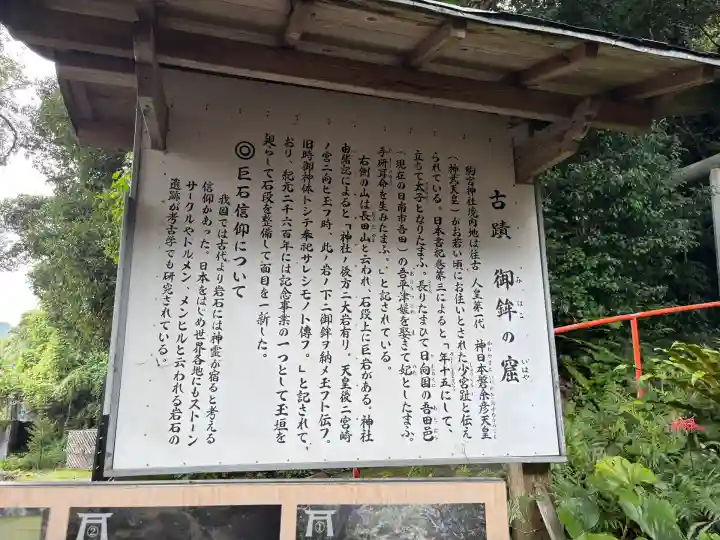 古蹟 御鉾の窟
みほこ
いわや
駒宮神社境内地は往古 人皇第一代 神日本磐余彦天皇
かむやまといわれひこすめらみこと
(神武天皇)がお若い頃にお住いとされた少宮趾と伝え
られている。日本書紀巻第三によると「年十五にして、
立ちて太子となりたまふ。長りたまひて日向国の吾田邑
(現在の日南市吾田)の吾平津媛を娶きて妃としたまふ。
手研耳命を生みたまふ。」と記されている。
右側の山は長田山と云われ、石段上に巨岩がある。神社
由緒記によると「神社ノ後方ニ大岩有り、天皇後ニ宮崎
ノ宮ニ向ヒ玉フ時、此ノ岩ノ下ニ御鉾ヲ納メ玉フト伝フ。
旧時御神体トシテ奉祀サレシモノト傳フ。」と記されて
おり、紀元二千六百年には記念事業の一つとして玉垣を
廻らして石段を整備して面目を一新した。
◎巨石信仰について
我国では古代より岩石には神霊が宿ると考える
信仰があった。日本をはじめ世界各地にもストーン
サークルやドルメン、メンヒルと云われる岩石の
遺跡が考古学でも研究されている。
②
①